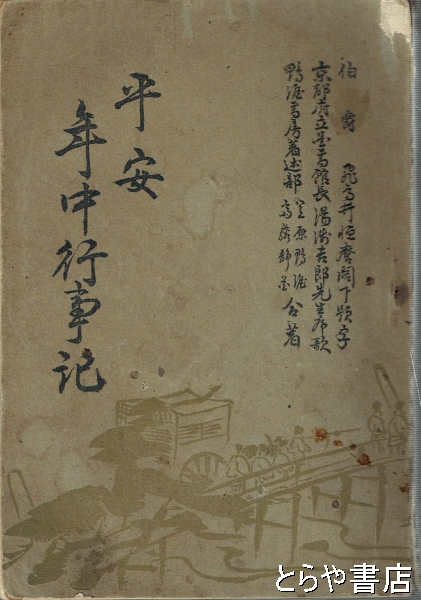 伯爵 飛鳥井恒麿閣下題字
京都府立図書館長湯浅吉郎先生序歌
鴨涯書房著述部 笠原鴨涯 合著
平安
年中行事記
とらや書店